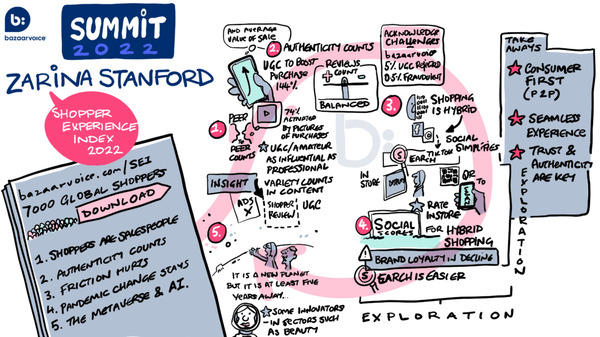 b:
bazaarvoice
SUMMIT
2022
ZARINA STANFORD
SHOPPER
EXPERIENCE
INDEX
2022
bazaarvoice.com/SEI
7000 GLOBAL SHOPPERS
DOWNLOAD
1. SHOPPERS ARE SALESPEOPLE
2. AUTHENTICITY COUNTS
3. FRICTION HURTS
4. PANDEMIC CHANGE STAYS
5. THE METAVERSE & AI.
AND AVERAGE
VALUE OF SALE
2. AUTHENTICITY COUNTS
UGC TO BOOST
PURCHASE
144%
REVIEWS
COUNT
BALANCED
1.
PEER
TO
PEER
COUNTS
74%
ACTIVATED
BY PICTURES
OF PURCHASES
UGC/AMATEUR
AS INFLUENTIAL AS
PROFESSIONAL
INSIGHT
VARIETY COUNTS
IN CONTENT
ADS
X
SHOPPER
REVIEW
UGC
5.
IT IS A NEW PLANET
BUT IT IS AT LEAST FIVE
YEARS AWAY...
SOME INNOVATORS
IN SECTORS SUCH
AS BEAUTY
ACKNOWLEDGE
CHALLENGES
bazaarvoice
5% UGC REJECTED
0.5% FRAUDULENT
3.
SHOPPING
IS HYBRID
SOCIAL
SIMPLIFIES
TIKTOK
SEARCH
IN
STORE
QR
OR
TO
RATE
INSTORE
4.
SOCIAL
SCORES
FOR HYBRID
SHOPPING
BRAND LOYALTY IN DECLINE
SEARCH IS EASIER
EXPLORATION
b:
TAKE
AWAYS
CONSUMER
FIRST
(P2P)
SEAMLESS
EXPERIENCE
TRUST &
AUTHENTICITY
ARE KEY
EXPLORATION